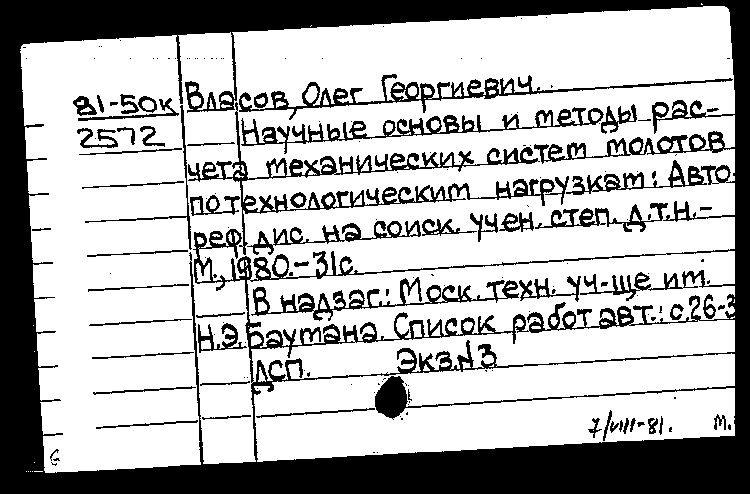 81-50к Власов, Олег Георгиевич.
2572 Научные основы и методы рас-
чета механических систем молотов
по технологическим нагрузкам: Авто-
реф. дис. на соиск. учен. степ. д.т.н.-
М., 1980.-31с.
В надзаг.: Моск. техн. уч-ще им.
Н.Э.Баумана. Список работ авт.: с.26-3
ДСП. Экз.N3
7/VIII-81. М.